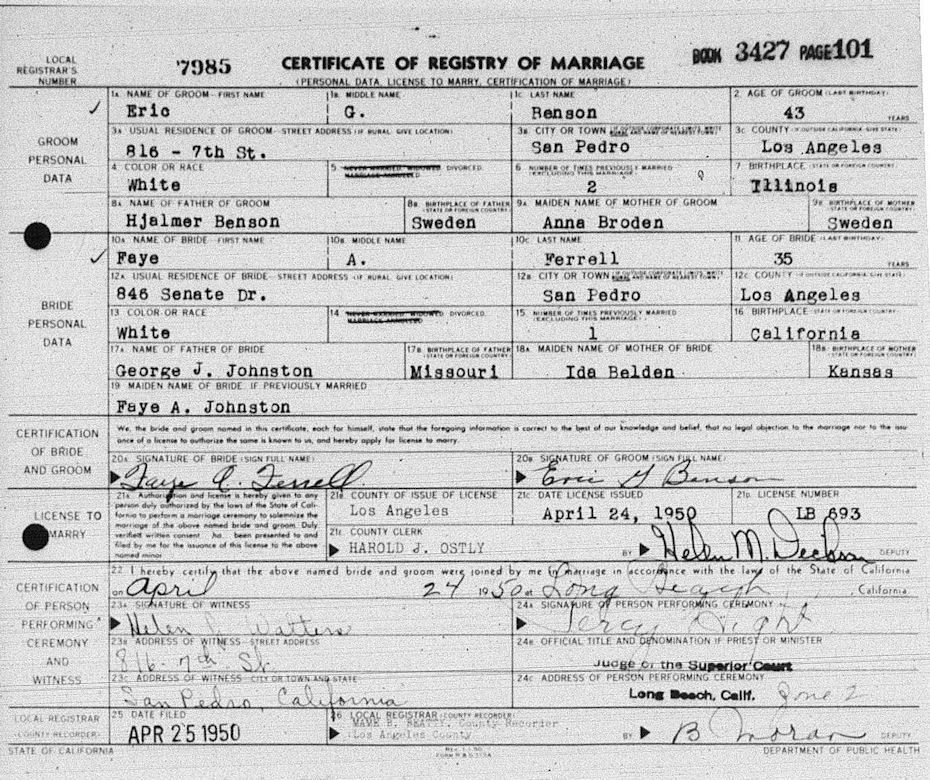 LOCAL REGISTRAR'S NUMBER
7985
CERTIFICATE OF REGISTRY OF MARRIAGE
BOOK 3427 PAGE 101
(PERSONAL DATA, LICENSE TO MARRY, CERTIFICATION OF MARRIAGE)
GROOM PERSONAL DATA
1A. NAME OF GROOM—FIRST NAME
Eric
1B. MIDDLE NAME
G.
1C. LAST NAME
Benson
2. AGE OF GROOM (LAST BIRTHDAY)
43 YEARS
3A. USUAL RESIDENCE OF GROOM—STREET ADDRESS (IF RURAL, GIVE LOCATION)
816 - 7th St.
3B. CITY OR TOWN (IF OUTSIDE CORPORATE LIMITS, WRITE RURAL AND NAME OF NEAREST TOWN)
San Pedro
3C. COUNTY (IF OUTSIDE CALIFORNIA, GIVE STATE)
Los Angeles
4. COLOR OR RACE
White
5. NEVER MARRIED, WIDOWED, DIVORCED, MARRIAGE ANNULLED
6. NUMBER OF TIMES PREVIOUSLY MARRIED (EXCLUDING THIS MARRIAGE)
2
7. BIRTHPLACE (STATE OR FOREIGN COUNTRY)
Illinois
8A. NAME OF FATHER OF GROOM
Hjalmer Benson
8B. BIRTHPLACE OF FATHER (STATE OR FOREIGN COUNTRY)
Sweden
9A. MAIDEN NAME OF MOTHER OF GROOM
Anna Broden
9B. BIRTHPLACE OF MOTHER (STATE OR FOREIGN COUNTRY)
Sweden
BRIDE PERSONAL DATA
10A. NAME OF BRIDE—FIRST NAME
Faye
10B. MIDDLE NAME
A.
10C. LAST NAME
Ferrell
11. AGE OF BRIDE (LAST BIRTHDAY)
35 YEARS
12A. USUAL RESIDENCE OF BRIDE—STREET ADDRESS (IF RURAL, GIVE LOCATION)
846 Senate Dr.
12B. CITY OR TOWN (IF OUTSIDE CORPORATE LIMITS, WRITE RURAL AND NAME OF NEAREST TOWN)
San Pedro
12C. COUNTY (IF OUTSIDE CALIFORNIA, GIVE STATE)
Los Angeles
13. COLOR OR RACE
White
14. NEVER MARRIED, WIDOWED, DIVORCED, MARRIAGE ANNULLED
15. NUMBER OF TIMES PREVIOUSLY MARRIED (EXCLUDING THIS MARRIAGE)
1
16. BIRTHPLACE (STATE OR FOREIGN COUNTRY)
California
17A. NAME OF FATHER OF BRIDE
George J. Johnston
17B. BIRTHPLACE OF FATHER (STATE OR FOREIGN COUNTRY)
Missouri
18A. MAIDEN NAME OF MOTHER OF BRIDE
Ida Belden
18B. BIRTHPLACE OF MOTHER (STATE OR FOREIGN COUNTRY)
Kansas
19. MAIDEN NAME OF BRIDE, IF PREVIOUSLY MARRIED
Faye A. Johnston
CERTIFICATION OF BRIDE AND GROOM
We, the bride and groom named in this certificate, each for himself, state that the foregoing information is correct to the best of our knowledge and belief, that no legal objection to the marriage nor to the issu
ance of a license to authorize the same is known to us, and hereby apply for license to marry.
20A. SIGNATURE OF BRIDE (SIGN FULL NAME)
Faye A. Ferrell
20B. SIGNATURE OF GROOM (SIGN FULL NAME)
Eric G Benson
LICENSE TO MARRY
21A. Authorization and license is hereby given to any
person duly authorized by the laws of the State of Cali-
fornia to perform a marriage ceremony to solemnize the
marriage of the above named bride and groom. Duly
verified written consent ha been presented to and
filed by me for the issuance of this license to the above
named minor
21B. COUNTY OF ISSUE OF LICENSE
Los Angeles
21C. DATE LICENSE ISSUED
April 24, 1950
21D. LICENSE NUMBER
LB 693
21E. COUNTY CLERK
HAROLD J. OSTLY
BY Helen M. DEPUTY
CERTIFICATION OF PERSON PERFORMING CEREMONY AND WITNESS
22. I hereby certify that the above named bride and groom were joined by me in marriage in accordance with the laws of the State of California
on April 24 1950 at Long Beach, California.
23A. SIGNATURE OF WITNESS
Helen Watters
24A. SIGNATURE OF PERSON PERFORMING CEREMONY
Percy Hight
23B. ADDRESS OF WITNESS—STREET ADDRESS
816 - 7th St.
24B. OFFICIAL TITLE AND DENOMINATION IF PRIEST OR MINISTER
Judge of the Superior Court
23C. ADDRESS OF WITNESS—CITY OR TOWN AND STATE
San Pedro, California
24C. ADDRESS OF PERSON PERFORMING CEREMONY
Long Beach, Calif. Zone 2
LOCAL REGISTRAR (COUNTY RECORDER)
25. DATE FILED
APR 25 1950
26. LOCAL REGISTRAR (COUNTY RECORDER)
MAME B. BEATTY, County Recorder
Los Angeles County
BY B Moran DEPUTY
STATE OF CALIFORNIA
DEPARTMENT OF PUBLIC HEALTH